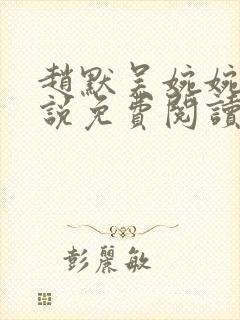 趙默吴婉婉
說免費閱讀
彭麗敏